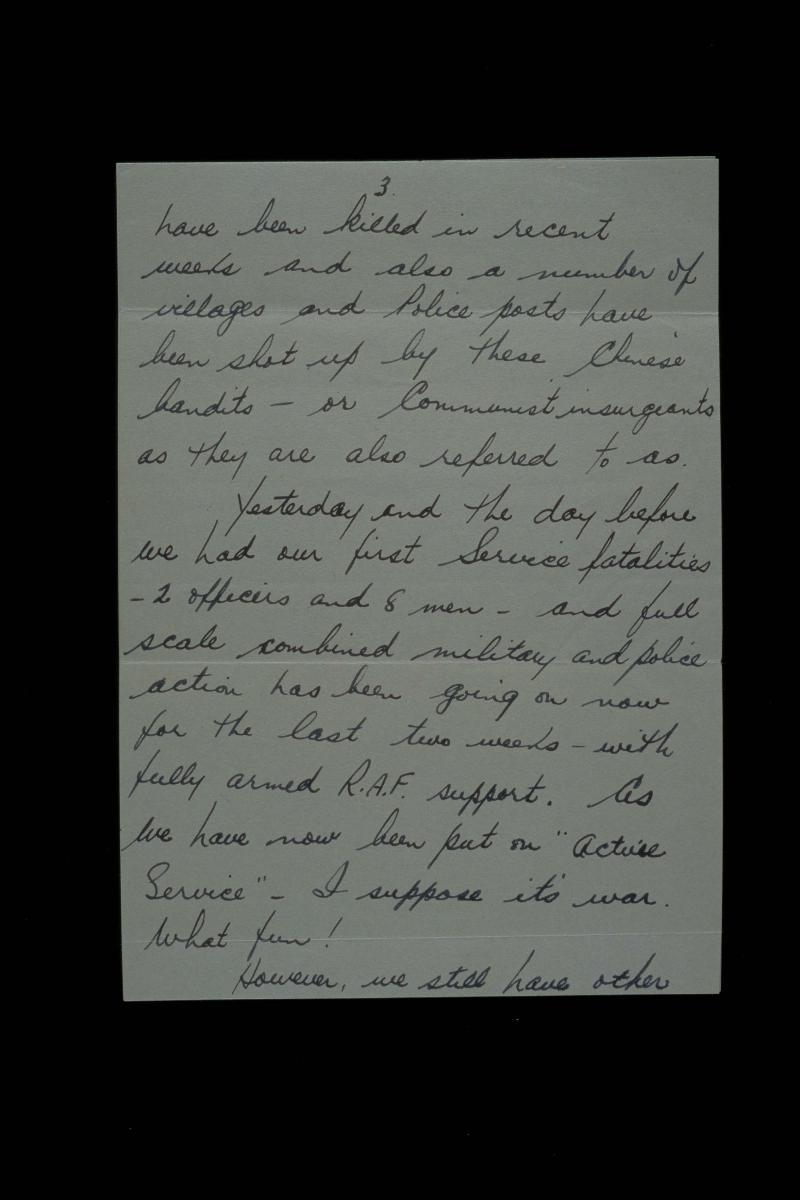 3.
have been killed in recent
weeks and also a number of
villages and Police posts have
been shot up by these Chinese
bandits — or Communist insurgeants
as they are also referred to as.
Yesterday and the day before
we had our first Service fatalities
- 2 officers and 8 men - and full
scale combined military and police
action has been going on now
for the last two weeks - with
fully armed R.A.F. support. As
we have now been put on "Active
Service" - I suppose it's war.
What fun!
However, we still have other